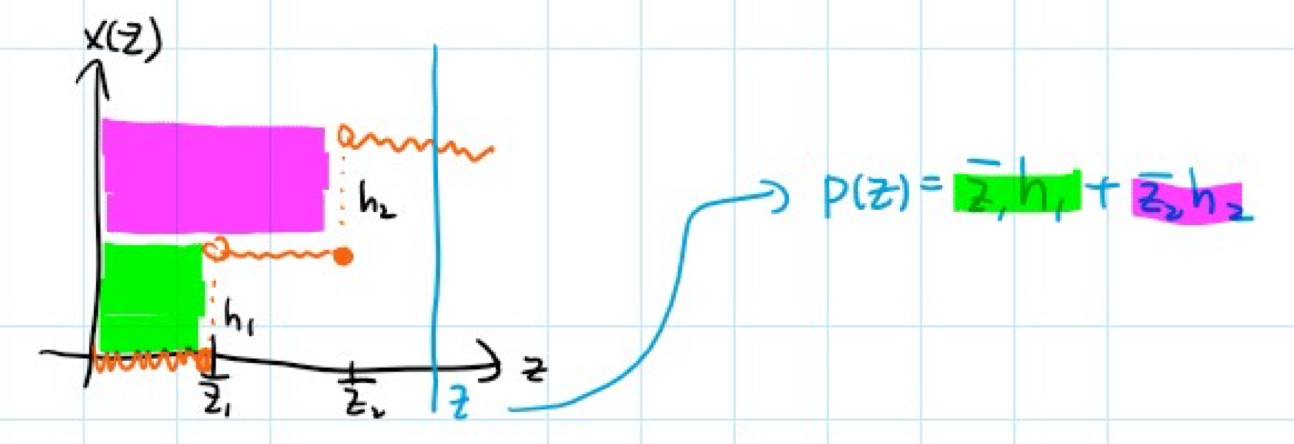 x(z)
h₂
h₁
z
z̄₁
z̄₂
z
p(z) = z̄₁h₁ + z̄₂h₂